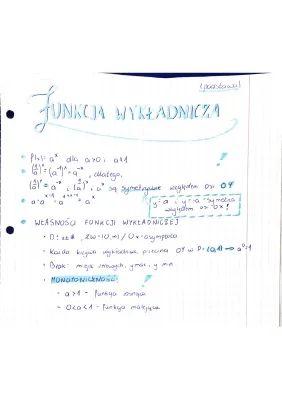 (podstawa)
FUNKCJA WYKŁADNICZA
aˣ dla a>0 i a≠1
(1/a)ˣ = (a⁻¹)ˣ = a⁻ˣ, dlatego,
(1/a)ˣ = a⁻ˣ ; (1/a)ˣ i aˣ są symetryczne względem osi OY
y=aˣ i y=-aˣ symetria
względem osi OX!
WŁASNOŚCI FUNKCJI WYKŁADNICZEJ
D: x∈R, Zw=(0,∞) / Ox-asymptota
Każda krzywa wykładnicza przecina OY w P=(0,1) → a⁰=1
Brak: miejsc zerowych, y max, y min
MONOTONICZNOŚĆ:
a>1 - funkcja rosnąca
0<a<1 - funkcja malejąca